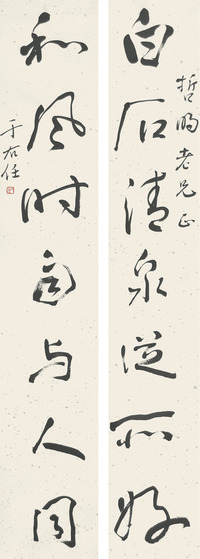 白石清泉從所好
哲明老兄正
和風时雨与人同
于右任